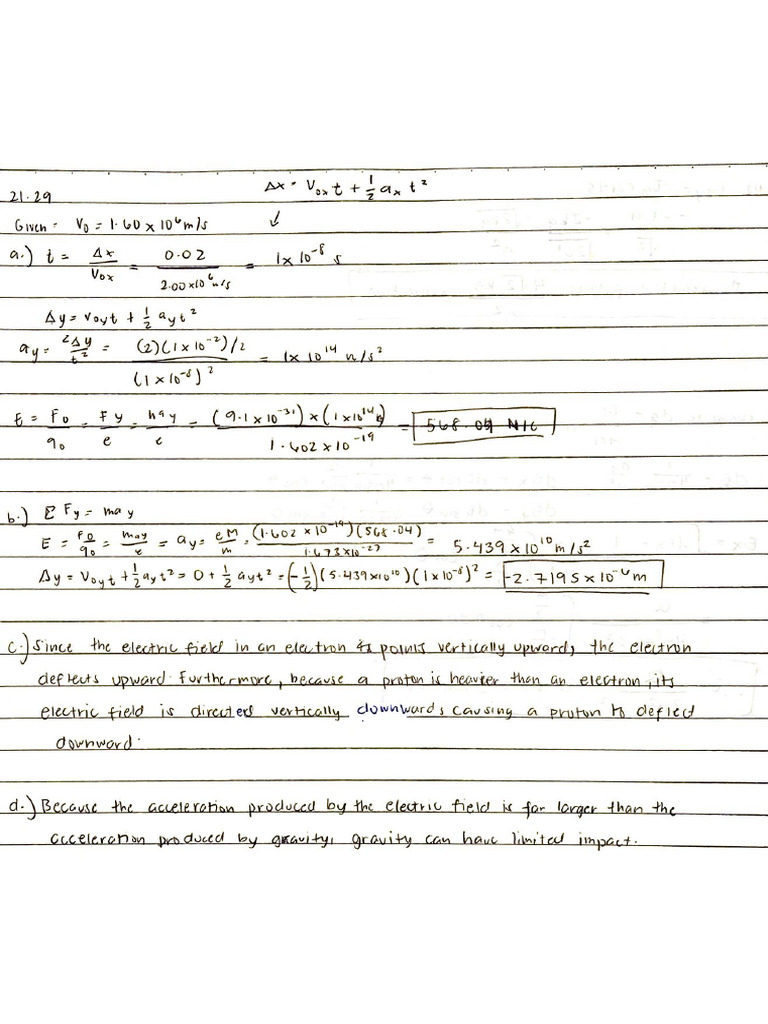 Δx = V₀ₓt + ½ aₓ t²
21.29
Given = V₀ = 1.60 x 10⁶ m/s ↓
a.) t = Δx / V₀ₓ = 0.02 / 2.00x10⁶ m/s = 1x10⁻⁸ s
Δy = v₀yt + ½ ayt²
ay = 2Δy / t² = (2)(1x10⁻²)/2 / (1x10⁻⁸)² = 1x10¹⁴ n/s²
E = F₀ / q₀ = Fy / e = may / e = (9.1x10⁻³¹)x(1x10¹⁴) / 1.602x10⁻¹⁹ = 568.04 N/C
b.) Σ Fy = may
E = F₀ / q₀ = may / e = ay = eM / m = (1.602 x 10⁻¹⁹)(568.04) / 1.673x10⁻²⁷ = 5.439x10¹⁰ m/s²
Δy = V₀yt + ½ayt² = 0 + ½ ayt² = (-½)(5.439x10¹⁰)(1x10⁻⁸)² = -2.7195x10⁻⁶ m
c.) Since the electric field in an electron points vertically upward, the electron
deflects upward. Furthermore, because a proton is heavier than an electron, its
electric field is directed vertically downwards causing a proton to deflect
downward.
d.) Because the acceleration produced by the electric field is far larger than the
acceleration produced by gravity, gravity can have limited impact.